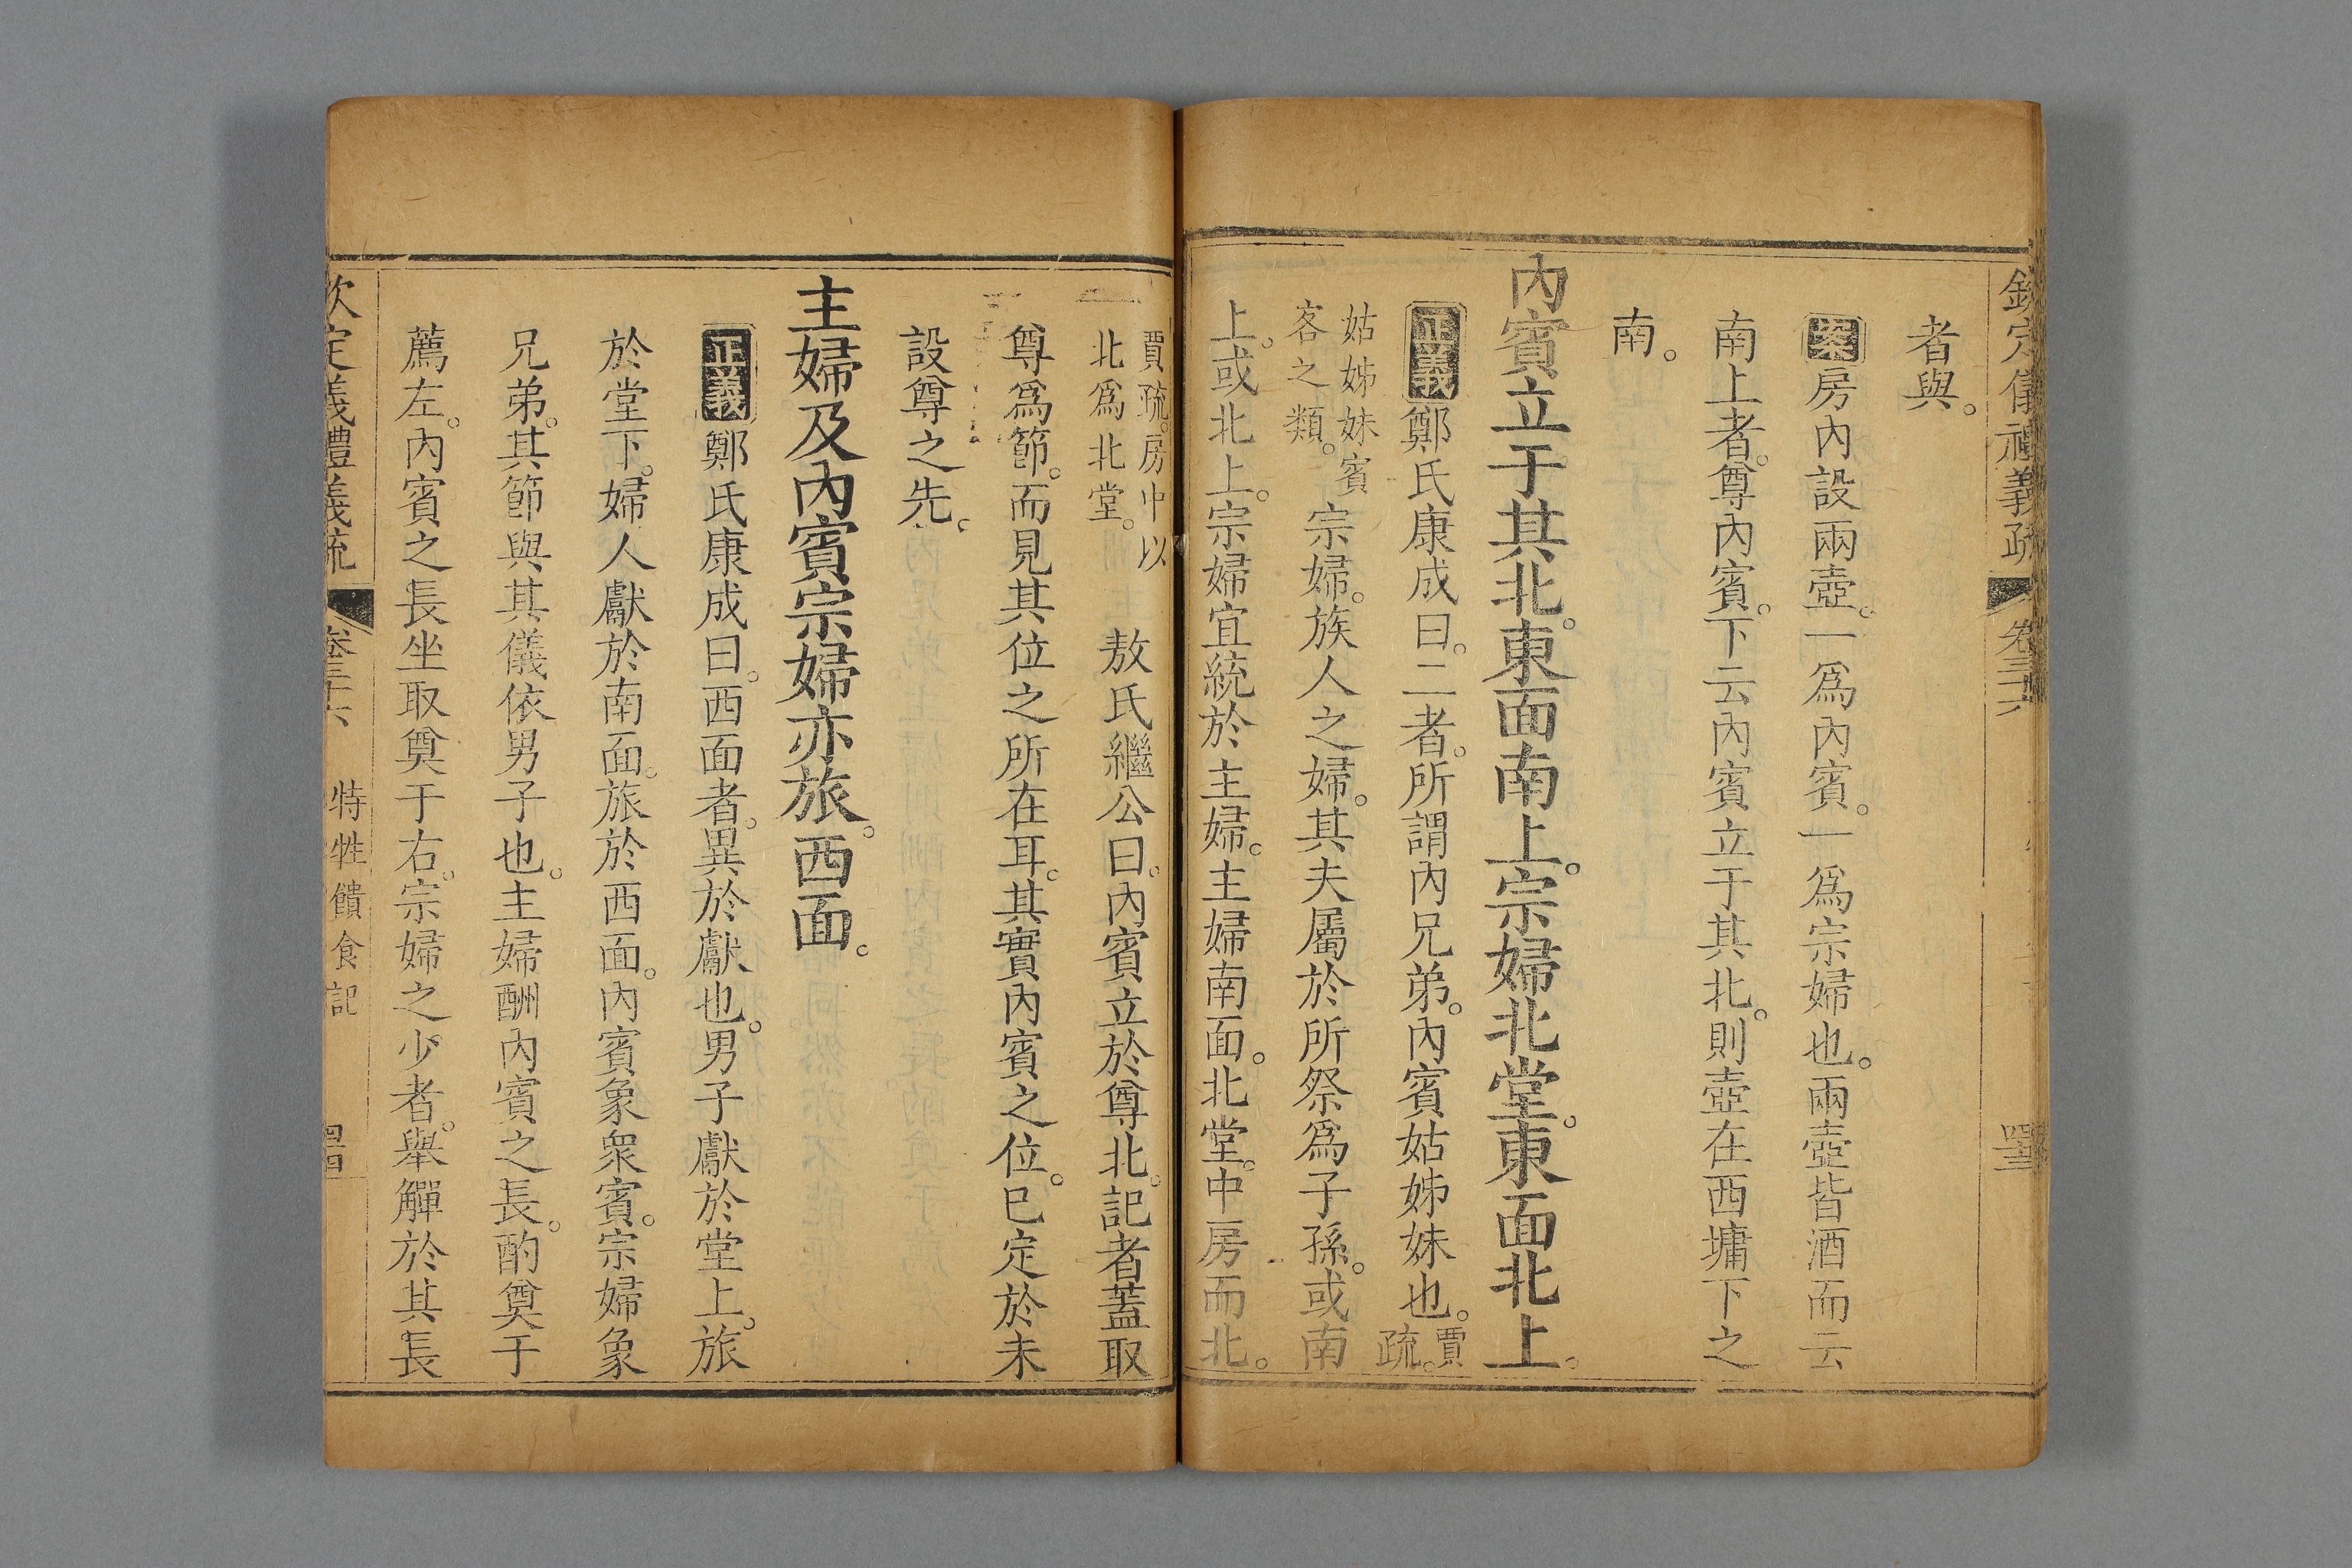 欽定儀禮義疏 卷三十六 四三
者與。
案 房內設兩壺。一爲內賓。一爲宗婦也。兩壺皆酒而云
南上者。尊內賓。下云內賓立于其北。則壺在西墉下之
南。
內賓立于其北。東面南上。宗婦北堂。東面北上。
正義 鄭氏康成曰。二者。所謂內兄弟。內賓姑姊妹也。賈疏。
姑姊妹賓客之類。宗婦。族人之婦。其夫屬於所祭爲子孫。或南
上。或北上。宗婦宜統於主婦。主婦南面。北堂。中房而北。
賈疏。房中以北爲北堂。 敖氏繼公曰。內賓立於尊北。記者蓋取
尊爲節。而見其位之所在耳。其實內賓之位。已定於未
設尊之先。
主婦及內賓宗婦亦旅。西面。
正義 鄭氏康成曰。西面者。異於獻也。男子獻於堂上。旅
於堂下。婦人獻於南面。旅於西面。內賓象衆賓。宗婦象
兄弟。其節與其儀依男子也。主婦酬內賓之長。酌奠于
薦左。內賓之長坐取奠于右。宗婦之少者。舉觶於其長
欽定義禮義疏 卷三十六 特牲饋食記 四四